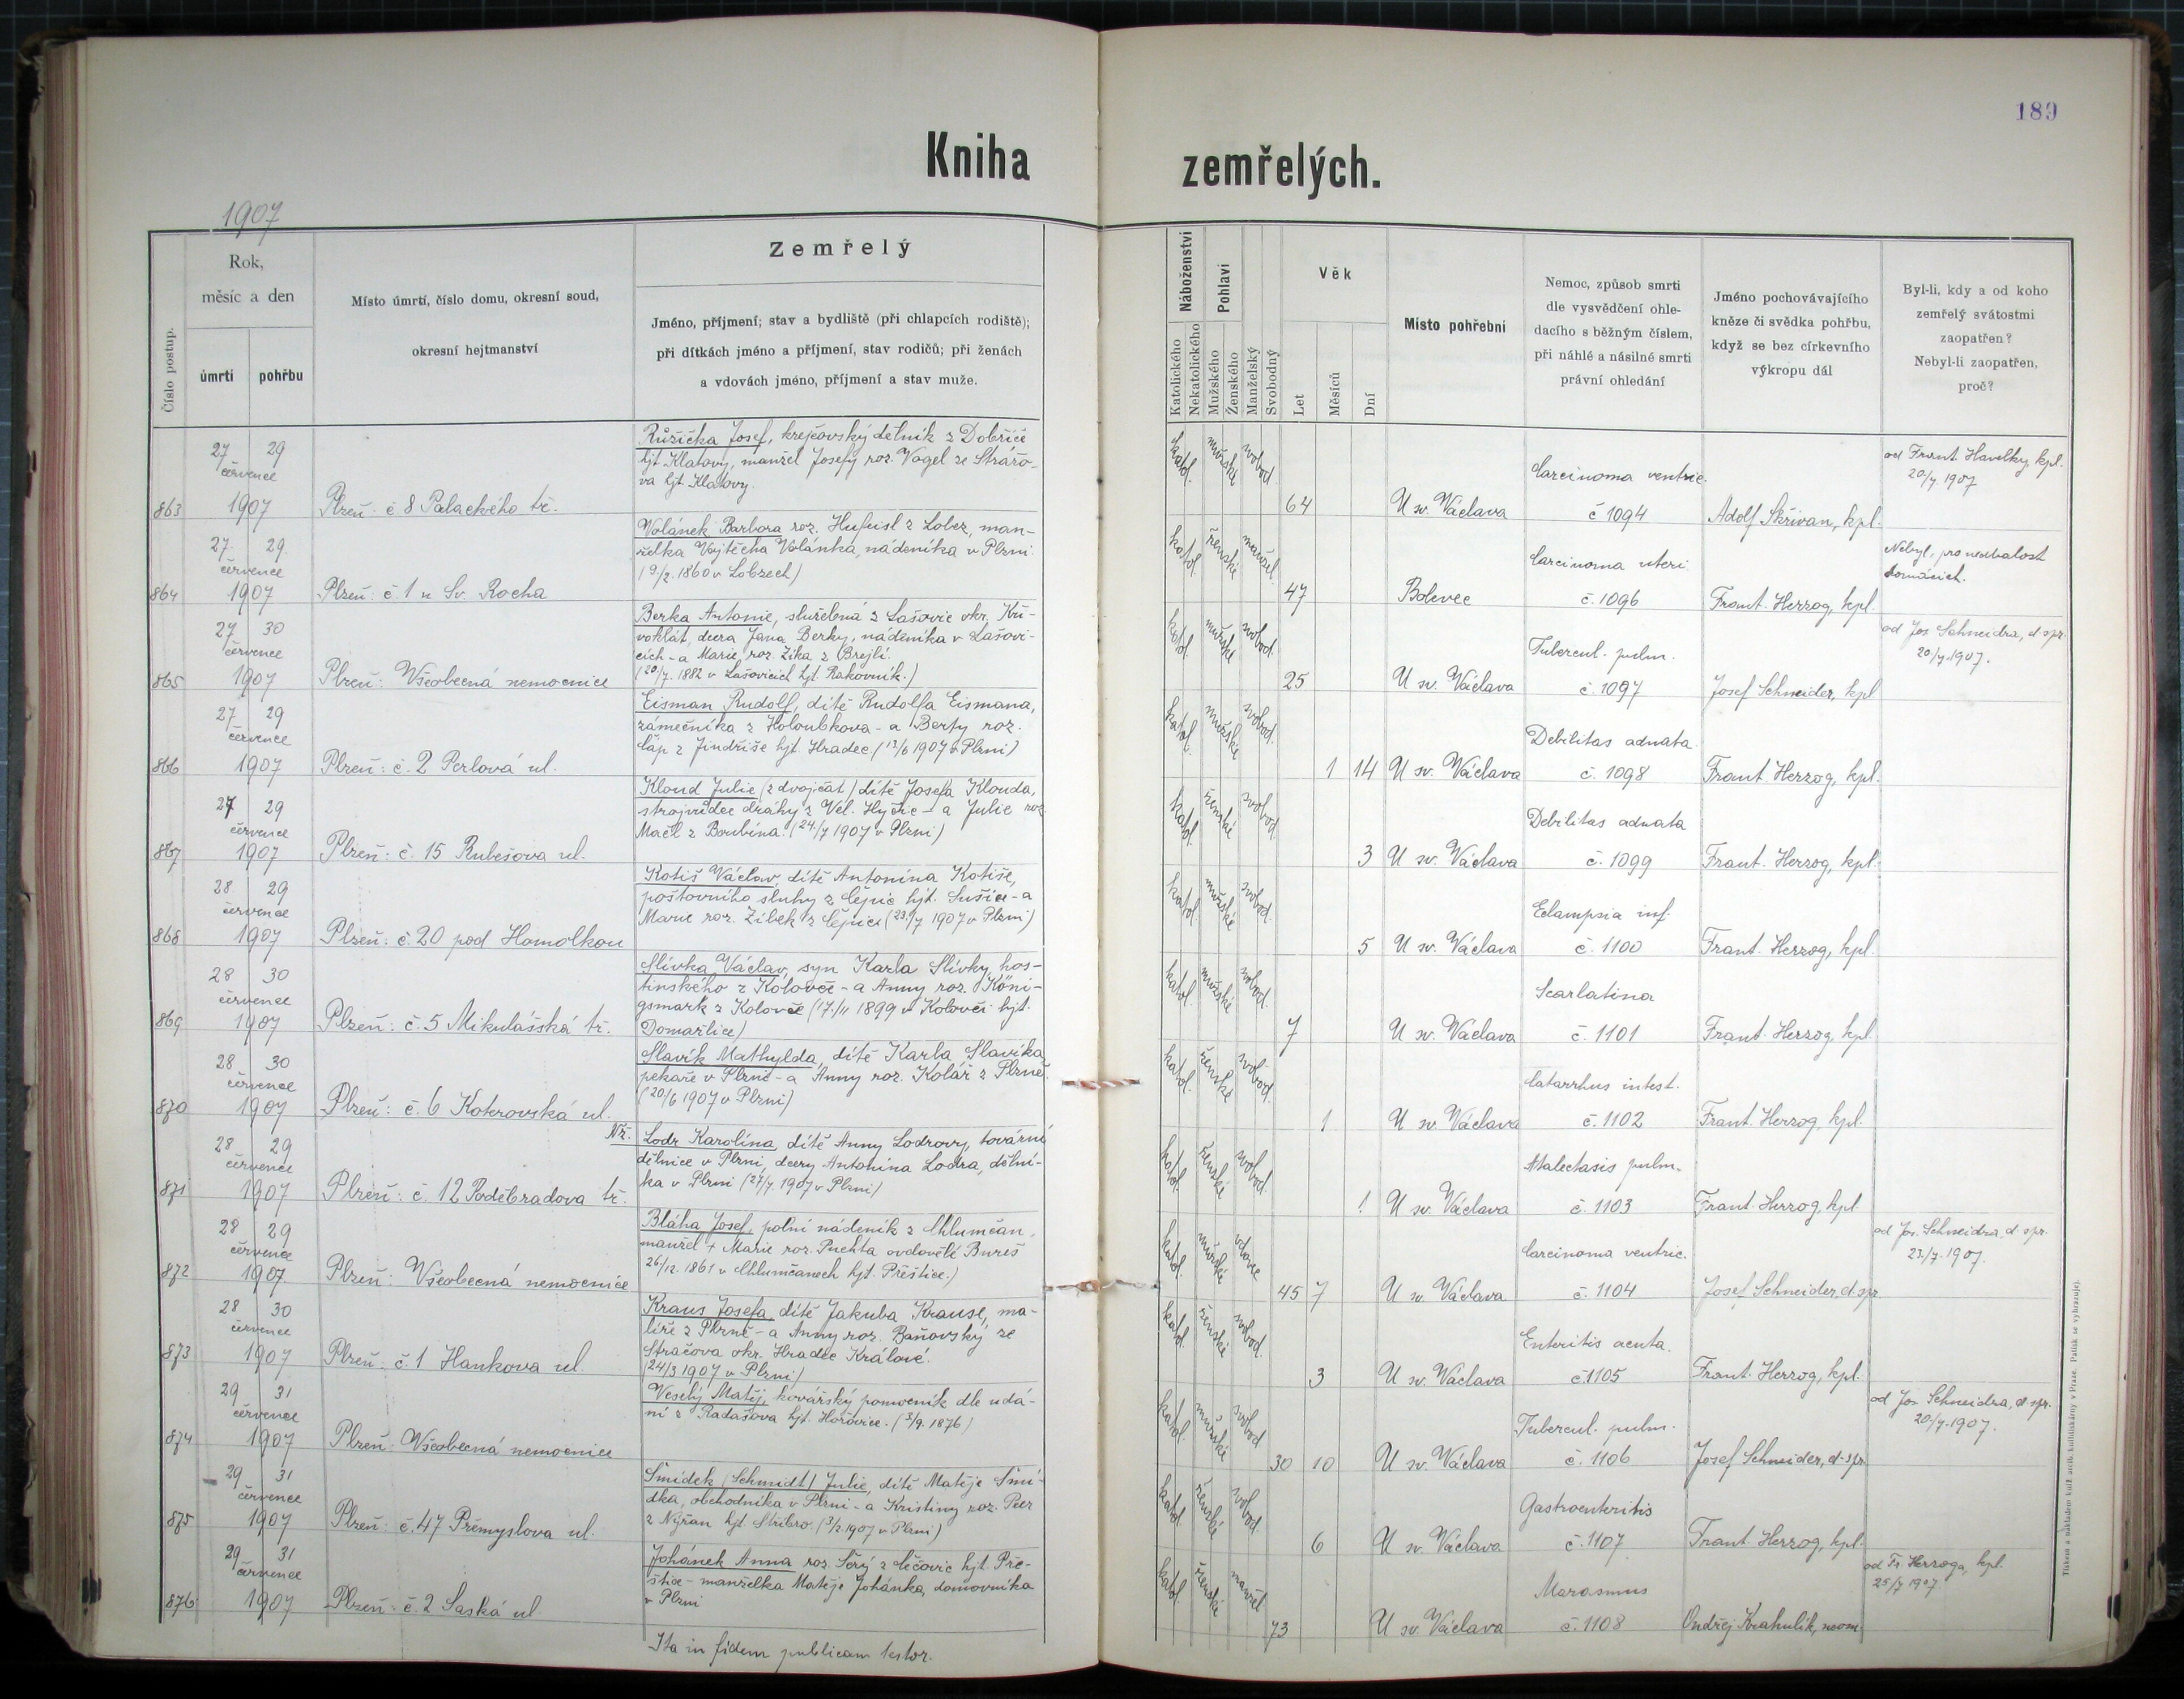 189
Kniha zemřelých.
1907
Číslo postup.
Rok,
měsíc a den
úmrtí
pohřbu
Místo úmrtí, číslo domu, okresní soud,
okresní hejtmanství
Zemřelý
Jméno, příjmení; stav a bydliště (při chlapcích rodiště);
při dítkách jméno a příjmení, stav rodičů; při ženách
a vdovách jméno, příjmení a stav muže.
Náboženství
Katolického
Nekatolického
Pohlaví
Mužského
Ženského
Manželský
Svobodný
Věk
Let
Měsíců
Dní
Místo pohřební
Nemoc, způsob smrti
dle vysvědčení ohle-
dacího s běžným číslem,
při náhlé a násilné smrti
právní ohledání
Jméno pochovávajícího
kněze či svědka pohřbu,
když se bez církevního
výkropu dál
Byl-li, kdy a od koho
zemřelý svátostmi
zaopatřen?
Nebyl-li zaopatřen,
proč?
863
27 29
července
1907
Plzeň: č 8 Palackého tř.
Růžička Josef, krejčovský dělník z Dobříče
hjt. Klatovy, manžel Josefy roz. Vogel ze Strážo-
va hjt. Klatovy.
katol. mužské svobod.
64
U sv. Václava
Carcinoma ventric.
č 1094
Adolf Skřivan, kpl.
od Frant. Havelky kpl.
20/7 1907
864
27. 29.
července
1907
Plzeň: č 1 u Sv. Rocha
Volánek Barbora roz. Hufeisl z Lobez, man-
želka Vojtěcha Volánka, nádeníka v Plzni.
(9/2. 1860 v Lobzech)
katol. ženské manžel.
47
Bolevec
Carcinoma uteri
č. 1096
Frant. Herzog, kpl.
Nebyl, pro nedbalost
domácích.
865
27 30
července
1907
Plzeň: Všeobecná nemocnice
Berka Antonie, služebná z Lašovic okr. Kři-
voklát, dcera Jana Berky, nádeníka v Lašovi-
cích - a Marie roz. Zíka z Brejlí.
(20/7. 1882 v Lašovicích hjt. Rakovník.)
katol. mužské svobod.
25
U sv. Václava
Tubercul. pulm.
č. 1097
Josef Schneider, kpl
od Jos. Schneidra, d. spr.
20/7. 1907.
866
27 29
července
1907
Plzeň: č. 2 Perlová ul.
Eisman Rudolf, dítě Rudolfa Eismana,
zámečníka z Holoubkova - a Berty roz.
Čáp z Jindřiše hjt. Hradec (13/6 1907 v Plzni)
katol. mužské svobod.
1 14
U sv. Václava
Debilitas adnata
č. 1098
Frant. Herzog, kpl.
867
27 29
července
1907
Plzeň: č. 15 Rubešova ul.
Kloud Julie (z dvojčat) dítě Josefa Klouda,
strojvůdce dráhy z Vel. Hyčic - a Julie roz
Mačl z Boubína. (24./7 1907 v Plzni)
katol. ženské svobod.
3
U sv. Václava
Debilitas adnata
č. 1099
Frant. Herzog, kpl.
868
28. 29
července
1907
Plzeň: č. 20 pod Homolkou
Kotiš Václav, dítě Antonína Kotiše,
poštovního sluhy z Čejnic hjt. Sušice - a
Marie roz. Zíbek z Čejnic (23./7 1907 v Plzni)
katol. mužské svobod.
5
U sv. Václava
Eclampsia inf.
č. 1100
Frant. Herzog, kpl.
869
28 30
července
1907
Plzeň: č. 5 Mikulášská tř.
Slívka Václav, syn Karla Slívky, hos-
tinského z Koloveče - a Anny roz. Köni-
gsmark z Kolovče (17./11 1899 v Kolovči hjt.
Domažlice)
katol. mužské svobod.
7
U sv. Václava
Scarlatina
č. 1101
Frant. Herzog, kpl.
870
28 30
července
1907
Plzeň: č. 6 Koterovská ul.
Slavík Mathylda, dítě Karla Slavíka,
pekaře v Plzni - a Anny roz. Kolář z Plzně.
(20/6 1907 v Plzni)
katol. ženské svobod.
1
U sv. Václava
Catarrhus intest.
č. 1102
Frant. Herzog, kpl.
871
28 29
července
1907
Plzeň: č. 12 Poděbradova tř.
Nž. Lodr Karolína, dítě Anny Lodrovy, tovární
dělnice v Plzni, dcery Antonína Lodra, dělní-
ka v Plzni (27/7. 1907 v Plzni)
katol. ženské svobod.
1
U sv. Václava
Atelectasis pulm.
č. 1103
Frant. Herzog, kpl
872
28 29
července
1907.
Plzeň: Všeobecná nemocnice
Bláha Josef, polní nádeník z Chlumčan,
manžel + Marie roz. Puchta ovdovělé Bureš
26/12. 1861 v Chlumčanech hjt. Přeštice.)
katol. mužské vdovec
45 7
U sv. Václava
Carcinoma ventric.
č. 1104
Josef Schneider, d. spr.
od Jos. Schneidra, d. spr.
23./7. 1907.
873
28 30
července
1907
Plzeň: č. 1 Hankova ul.
Kraus Josefa, dítě Jakuba Krause, ma-
líře z Plzně - a Anny roz. Baňovský ze
Stračova okr. Hradec Králové.
(24/3 1907 v Plzni)
katol. ženské svobod.
3
U sv. Václava
Enteritis acuta.
č. 1105
Frant. Herzog, kpl.
874
29 31
července
1907
Plzeň: Všeobecná nemocnice
Veselý Matěj, kovářský pomocník dle udá-
ní z Radašova hjt. Hořovice.
katol. mužské svobod
30 10
U sv. Václava
Tubercul. pulm.
č. 1106
Josef Schneider, d. spr.
od Jos. Schneidra, d. spr.
20./7. 1907.
875
29 31
července
1907
Plzeň: č. 47 Přemyslova ul.
Šmídek (Schmidt) Julie, dítě Matěje Šmí-
dka, obchodníka v Plzni - a Kristiny roz. Peer
z Nýřan hjt. Stříbro. (3/2 1907 v Plzni)
katol. ženské svobod.
6
U sv. Václava
Gastroenteritis
č. 1107
Frant. Herzog, kpl.
876
29 31
července
1907
Plzeň: č. 2 Saská ul
Johánek Anna roz. Šérý z Lečovic hjt. Pře-
štice - manželka Matěje Johánka, domovníka
v Plzni
katol. ženské manžel
73
U sv. Václava
Marasmus
č. 1108
Ondřej Krahulík, neom.
od Fr. Herzoga, kpl.
25/7 1907.
Ita in fidem publicam testor.
Tiskem a nákladem kníž. arcib. knihtiskárny v Praze. Patisk se vyhrazuje.